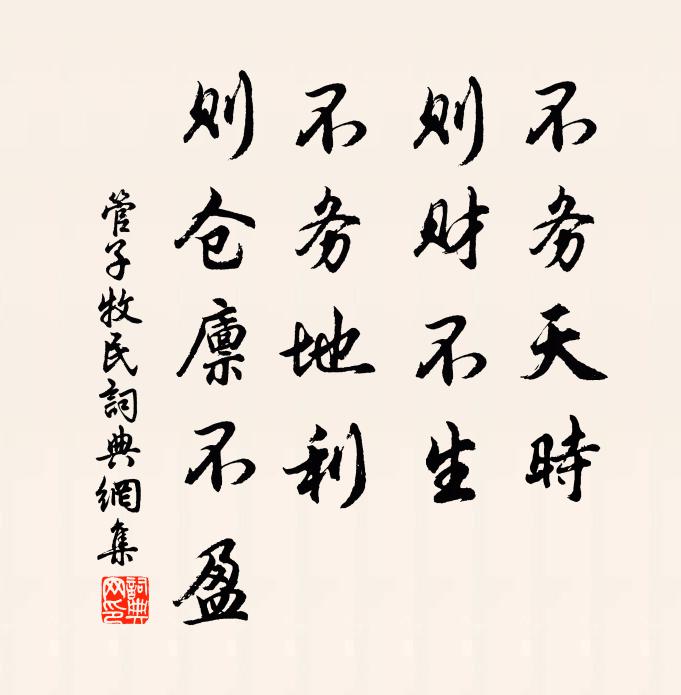 不务天時
则财不生
不务地利
则仓廪不盈
管子牧民詞典網集
詞典网印